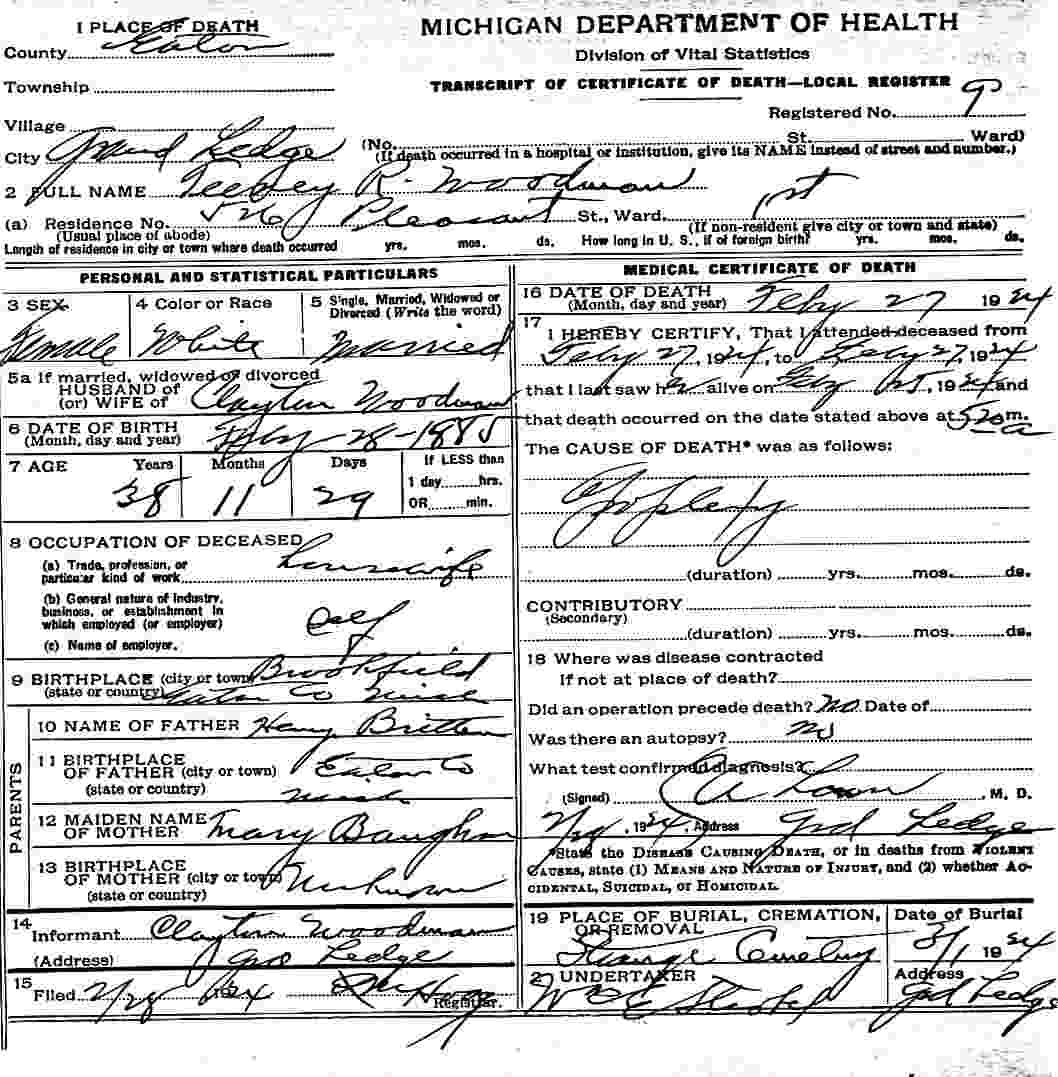 1 PLACE OF DEATH
County Eaton
Township
Village
City Grand Ledge
MICHIGAN DEPARTMENT OF HEALTH
Division of Vital Statistics
TRANSCRIPT OF CERTIFICATE OF DEATH—LOCAL REGISTER
Registered No. 9
(No. St. Ward)
(If death occurred in a hospital or institution, give its NAME instead of street and number.)
2 FULL NAME R. Woodman
(a) Residence No. 526 Pleasant St., Ward. 1st
(Usual place of abode) (If non-resident give city or town and state)
Length of residence in city or town where death occurred yrs. mos. ds. How long in U. S., if of foreign birth? yrs. mos. ds.
PERSONAL AND STATISTICAL PARTICULARS
3 SEX
Female
4 Color or Race
White
5 Single, Married, Widowed or
Divorced (Write the word)
Married
5a If married, widowed or divorced
HUSBAND of
(or) WIFE of Clayton Woodman
6 DATE OF BIRTH
(Month, day and year) Feby 28-1885
7 AGE Years Months Days If LESS than
1 day hrs.
38 11 29 OR min.
8 OCCUPATION OF DECEASED
(a) Trade, profession, or
particular kind of work housewife
(b) General nature of industry,
business, or establishment in
which employed (or employer) self
(c) Name of employer.
9 BIRTHPLACE (city or town) Brookfield
(state or country) Eaton Co Mich
PARENTS
10 NAME OF FATHER Britten
11 BIRTHPLACE
OF FATHER (city or town) Eaton Co
(state or country) Mich
12 MAIDEN NAME
OF MOTHER Mary Baughman
13 BIRTHPLACE
OF MOTHER (city or town) Unknown
(state or country)
14
Informant Clayton Woodman
(Address) Grd Ledge
15
Filed Registrar.
MEDICAL CERTIFICATE OF DEATH
16 DATE OF DEATH
(Month, day and year) Feby 27 1924
17
I HEREBY CERTIFY, That I attended deceased from
Feby 27, 1924, to Feby 27, 1924
that I last saw her alive on Feby 25, 1924 and
that death occurred on the date stated above at 520 a m.
The CAUSE OF DEATH* was as follows:
Apoplexy
(duration) yrs. mos. ds.
CONTRIBUTORY
(Secondary)
(duration) yrs. mos. ds.
18 Where was disease contracted
If not at place of death?
Did an operation precede death? No Date of
Was there an autopsy? No
What test confirmed diagnosis?
(Signed) M. D.
1924, Address Grd Ledge
*State the DISEASE CAUSING DEATH, or in deaths from VIOLENT
CAUSES, state (1) MEANS AND NATURE OF INJURY, and (2) whether AC-
CIDENTAL, SUICIDAL, or HOMICIDAL.
19 PLACE OF BURIAL, CREMATION,
OR REMOVAL
Strange Cemetery
Date of Burial
3/1 1924
2 UNDERTAKER
Address
Grd Ledge